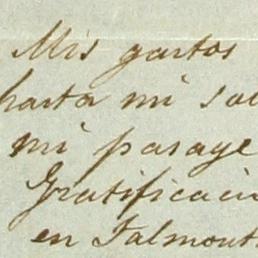 Mis gastos
hasta mi sal
mi pasage
Gratificacin
en Falmouth